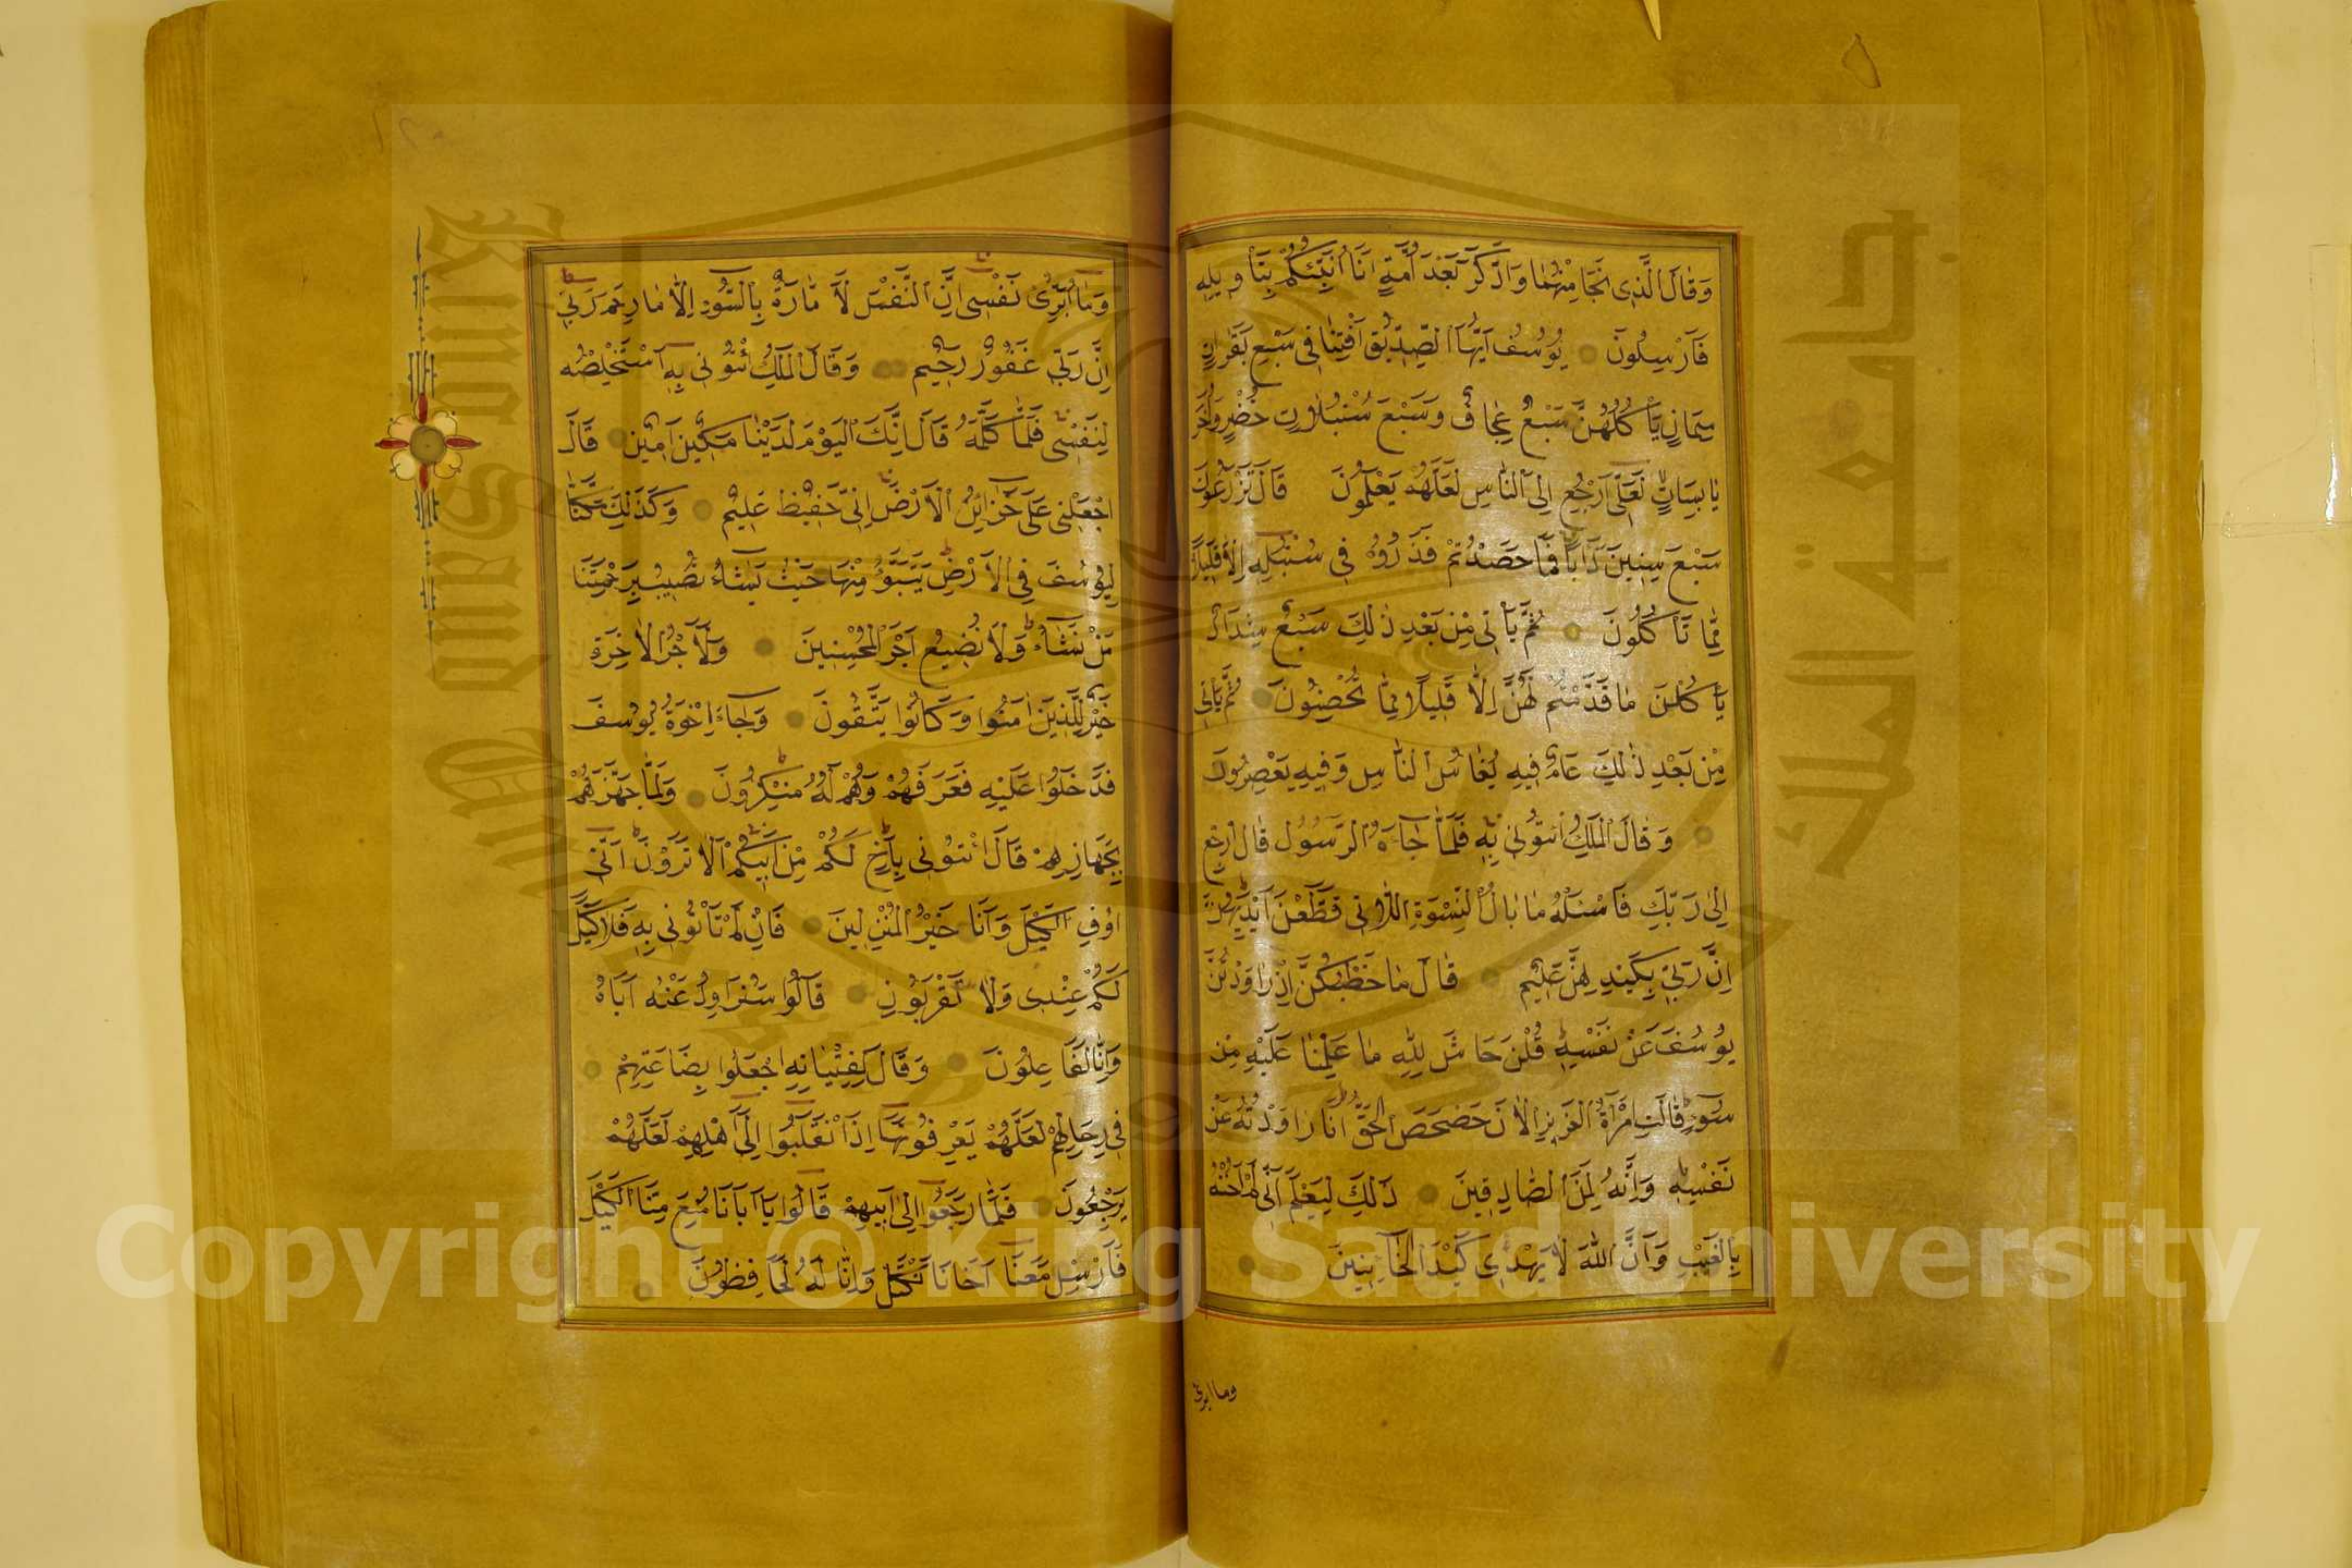 وَقَالَ الَّذِى نَجَا مِنْهُمَا وَادَّكَرَ بَعْدَ اُمَّةٍ اَنَا اُنَبِّئُكُمْ بِتَأْوِيلِهِ
فَاَرْسِلُونَ يُوسُفُ اَيُّهَا الصِّدِّيقُ اَفْتِنَا فِى سَبْعِ بَقَرَاتٍ
سِمَانٍ يَأْكُلُهُنَّ سَبْعٌ عِجَافٌ وَسَبْعَ سُنْبُلَاتٍ خُضْرٍ وَاُخَرَ
يَابِسَاتٍ لَعَلِّى اَرْجِعُ اِلَى النَّاسِ لَعَلَّهُمْ يَعْلَمُونَ قَالَ تَزْرَعُونَ
سَبْعَ سِنِينَ دَاَبًا فَمَا حَصَدْتُمْ فَذَرُوهُ فِى سُنْبُلِهِ اِلَّا قَلِيلًا
مِمَّا تَأْكُلُونَ ثُمَّ يَأْتِى مِنْ بَعْدِ ذٰلِكَ سَبْعٌ شِدَادٌ
يَأْكُلْنَ مَا قَدَّمْتُمْ لَهُنَّ اِلَّا قَلِيلًا مِمَّا تُحْصِنُونَ ثُمَّ يَأْتِى
مِنْ بَعْدِ ذٰلِكَ عَامٌ فِيهِ يُغَاثُ النَّاسُ وَفِيهِ يَعْصِرُونَ
وَقَالَ الْمَلِكُ ائْتُونِى بِهِ فَلَمَّا جَاءَهُ الرَّسُولُ قَالَ ارْجِعْ
اِلٰى رَبِّكَ فَاسْئَلْهُ مَا بَالُ النِّسْوَةِ اللَّاتِى قَطَّعْنَ اَيْدِيَهُنَّ
اِنَّ رَبِّى بِكَيْدِهِنَّ عَلِيمٌ قَالَ مَا خَطْبُكُنَّ اِذْ رَاوَدْتُنَّ
يُوسُفَ عَنْ نَفْسِهِ قُلْنَ حَاشَ لِلّٰهِ مَا عَلِمْنَا عَلَيْهِ مِنْ
سُوءٍ قَالَتِ امْرَأَةُ الْعَزِيزِ الْاٰنَ حَصْحَصَ الْحَقُّ اَنَا رَاوَدْتُهُ عَنْ
نَفْسِهِ وَاِنَّهُ لَمِنَ الصَّادِقِينَ ذٰلِكَ لِيَعْلَمَ اَنِّى لَمْ اَخُنْهُ
بِالْغَيْبِ وَاَنَّ اللّٰهَ لَا يَهْدِى كَيْدَ الْخَائِنِينَ
وما ابرئ
وَمَا اُبَرِّئُ نَفْسِى اِنَّ النَّفْسَ لَاَمَّارَةٌ بِالسُّوءِ اِلَّا مَا رَحِمَ رَبِّى
اِنَّ رَبِّى غَفُورٌ رَحِيمٌ وَقَالَ الْمَلِكُ ائْتُونِى بِهِ اَسْتَخْلِصْهُ
لِنَفْسِى فَلَمَّا كَلَّمَهُ قَالَ اِنَّكَ الْيَوْمَ لَدَيْنَا مَكِينٌ اَمِينٌ قَالَ
اجْعَلْنِى عَلٰى خَزَائِنِ الْاَرْضِ اِنِّى حَفِيظٌ عَلِيمٌ وَكَذٰلِكَ مَكَّنَّا
لِيُوسُفَ فِى الْاَرْضِ يَتَبَوَّؤُ مِنْهَا حَيْثُ يَشَاءُ نُصِيبُ بِرَحْمَتِنَا
مَنْ نَشَاءُ وَلَا نُضِيعُ اَجْرَ الْمُحْسِنِينَ وَلَاَجْرُ الْاٰخِرَةِ
خَيْرٌ لِلَّذِينَ اٰمَنُوا وَكَانُوا يَتَّقُونَ وَجَاءَ اِخْوَةُ يُوسُفَ
فَدَخَلُوا عَلَيْهِ فَعَرَفَهُمْ وَهُمْ لَهُ مُنْكِرُونَ وَلَمَّا جَهَّزَهُمْ
بِجَهَازِهِمْ قَالَ ائْتُونِى بِاَخٍ لَكُمْ مِنْ اَبِيكُمْ اَلَا تَرَوْنَ اَنِّى
اُوفِى الْكَيْلَ وَاَنَا خَيْرُ الْمُنْزِلِينَ فَاِنْ لَمْ تَأْتُونِى بِهِ فَلَا كَيْلَ
لَكُمْ عِنْدِى وَلَا تَقْرَبُونِ قَالُوا سَنُرَاوِدُ عَنْهُ اَبَاهُ
وَاِنَّا لَفَاعِلُونَ وَقَالَ لِفِتْيَانِهِ اجْعَلُوا بِضَاعَتَهُمْ
فِى رِحَالِهِمْ لَعَلَّهُمْ يَعْرِفُونَهَا اِذَا انْقَلَبُوا اِلٰى اَهْلِهِمْ لَعَلَّهُمْ
يَرْجِعُونَ فَلَمَّا رَجَعُوا اِلٰى اَبِيهِمْ قَالُوا يَا اَبَانَا مُنِعَ مِنَّا الْكَيْلُ
فَاَرْسِلْ مَعَنَا اَخَانَا نَكْتَلْ وَاِنَّا لَهُ لَحَافِظُونَ
King Saud University
جامعة الملك
Copyright © King Saud University